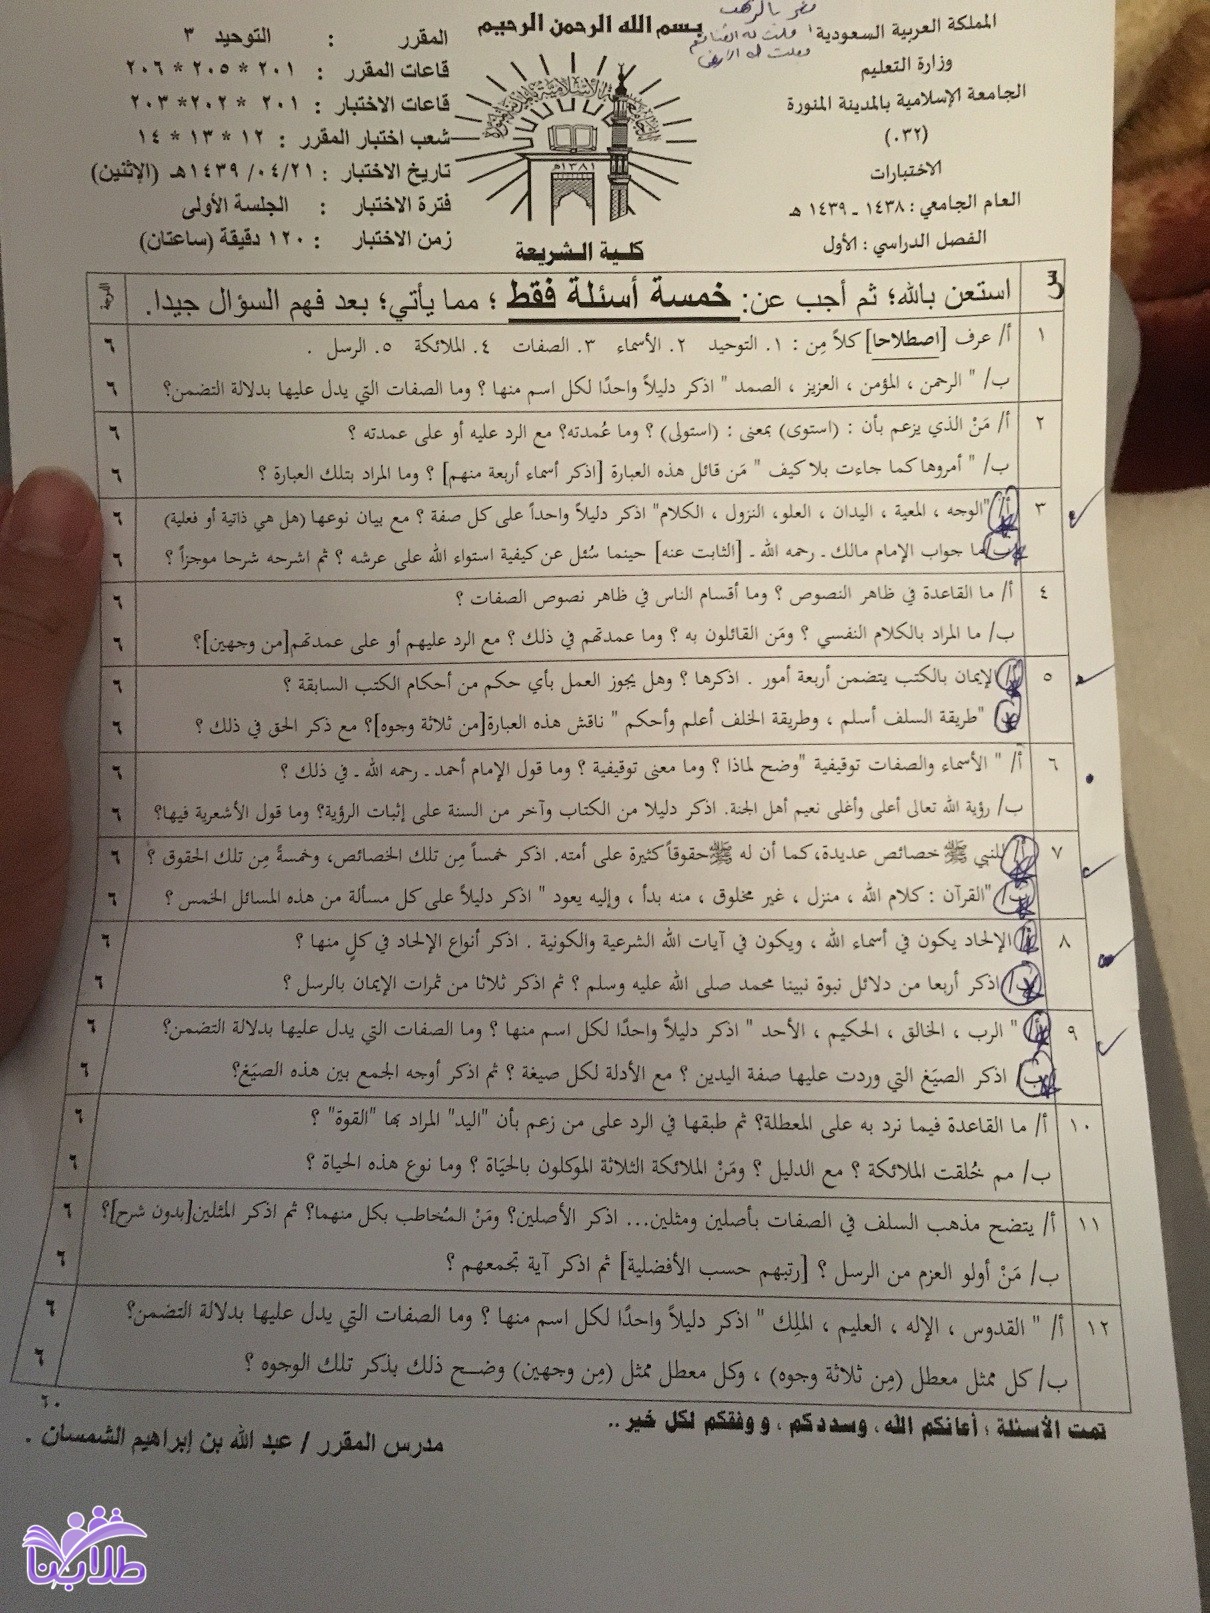 المملكة العربية السعودية
وزارة التعليم
الجامعة الإسلامية بالمدينة المنورة
(٠٣٢)
الاختبارات
العام الجامعي : ١٤٣٨ ـ ١٤٣٩ هـ
الفصل الدراسي : الأول
بسم الله الرحمن الرحيم
١٣٨١م
كلية الشريعة
المقرر : التوحيد ٣
قاعات المقرر : ٢٠١ * ٢٠٥ * ٢٠٦
قاعات الاختبار : ٢٠١ * ٢٠٢ * ٢٠٣
شعب اختبار المقرر : ١٢ * ١٣ * ١٤
تاريخ الاختبار : ٠٤/٢١/ ١٤٣٩هـ (الإثنين)
فترة الاختبار : الجلسة الأولى
زمن الاختبار : ١٢٠ دقيقة (ساعتان)
استعن بالله؛ ثم أجب عن: خمسة أسئلة فقط ؛ مما يأتي؛ بعد فهم السؤال جيدا. الدرجة
١ أ/ عرف [اصطلاحا] كلاً مِن : ١. التوحيد ٢. الأسماء ٣. الصفات ٤. الملائكة ٥. الرسل . ٦
ب/ " الرحمن ، المؤمن ، العزيز ، الصمد " اذكر دليلاً واحدًا لكل اسم منها ؟ وما الصفات التي يدل عليها بدلالة التضمن؟ ٦
٢ أ/ مَنْ الذي يزعم بأن : (استوى) بمعنى : (استولى) ؟ وما عُمدته؟ مع الرد عليه أو على عمدته ؟ ٦
ب/ " أمروها كما جاءت بلا كيف " مَن قائل هذه العبارة [اذكر أسماء أربعة منهم] ؟ وما المراد بتلك العبارة ؟ ٦
٣ أ/ "الوجه ، المعية ، اليدان ، العلو، النزول ، الكلام" اذكر دليلاً واحداً على كل صفة ؟ مع بيان نوعها (هل هي ذاتية أو فعلية) ٦
ب/ ما جواب الإمام مالك ـ رحمه الله ـ [الثابت عنه] حينما سُئل عن كيفية استواء الله على عرشه ؟ ثم اشرحه شرحا موجزاً ؟ ٦
٤ أ/ ما القاعدة في ظاهر النصوص ؟ وما أقسام الناس في ظاهر نصوص الصفات ؟ ٦
ب/ ما المراد بالكلام النفسي ؟ ومَن القائلون به ؟ وما عمدتهم في ذلك ؟ مع الرد عليهم أو على عمدتهم[من وجهين]؟ ٦
٥ أ/ الإيمان بالكتب يتضمن أربعة أمور . اذكرها ؟ وهل يجوز العمل بأي حكم من أحكام الكتب السابقة ؟ ٦
ب/ "طريقة السلف أسلم ، وطريقة الخلف أعلم وأحكم " ناقش هذه العبارة[من ثلاثة وجوه]؟ مع ذكر الحق في ذلك ؟ ٦
٦ أ/ " الأسماء والصفات توقيفية "وضح لماذا ؟ وما معنى توقيفية ؟ وما قول الإمام أحمد ـ رحمه الله ـ في ذلك ؟ ٦
ب/ رؤية الله تعالى أعلى وأغلى نعيم أهل الجنة. اذكر دليلا من الكتاب وآخر من السنة على إثبات الرؤية؟ وما قول الأشعرية فيها؟ ٦
٧ أ/ للنبي ﷺ خصائص عديدة، كما أن له ﷺ حقوقاً كثيرة على أمته. اذكر خمساً مِن تلك الخصائص، وخمسةً مِن تلك الحقوق ؟ ٦
ب/ "القرآن : كلام الله ، منزل ، غير مخلوق ، منه بدأ ، وإليه يعود " اذكر دليلاً على كل مسألة من هذه المسائل الخمس ؟ ٦
٨ أ/ الإلحاد يكون في أسماء الله ، ويكون في آيات الله الشرعية والكونية . اذكر أنواع الإلحاد في كلٍ منها ؟ ٦
ب/ اذكر أربعا من دلائل نبوة نبينا محمد صلى الله عليه وسلم ؟ ثم اذكر ثلاثا من ثمرات الإيمان بالرسل ؟ ٦
٩ أ/ " الرب ، الخالق ، الحكيم ، الأحد " اذكر دليلاً واحدًا لكل اسم منها ؟ وما الصفات التي يدل عليها بدلالة التضمن؟ ٦
ب/ اذكر الصيَغ التي وردت عليها صفة اليدين ؟ مع الأدلة لكل صيغة ؟ ثم اذكر أوجه الجمع بين هذه الصيَغ؟ ٦
١٠ أ/ ما القاعدة فيما نرد به على المعطلة؟ ثم طبقها في الرد على من زعم بأن "اليد" المراد بها "القوة" ؟ ٦
ب/ مم خُلقت الملائكة ؟ مع الدليل ؟ ومَنْ الملائكة الثلاثة الموكلون بالحيَاة ؟ وما نوع هذه الحياة ؟ ٦
١١ أ/ يتضح مذهب السلف في الصفات بأصلين ومثلين... اذكر الأصلين؟ ومَنْ المُخاطب بكل منهما؟ ثم اذكر المثلين[بدون شرح]؟ ٦
ب/ مَنْ أولو العزم من الرسل ؟ [رتبهم حسب الأفضلية] ثم اذكر آية تجمعهم ؟ ٦
١٢ أ/ " القدوس ، الإله ، العليم ، الملِك " اذكر دليلاً واحدًا لكل اسم منها ؟ وما الصفات التي يدل عليها بدلالة التضمن؟ ٦
ب/ كل ممثل معطل (مِن ثلاثة وجوه) ، وكل معطل ممثل (مِن وجهين) وضح ذلك بذكر تلك الوجوه ؟ ٦
٦٠
تمت الأسئلة ؛ أعانكم الله ، وسددكم ، ووفقكم لكل خير ..
مدرس المقرر / عبد الله بن إبراهيم الشمسان .
طلابنا